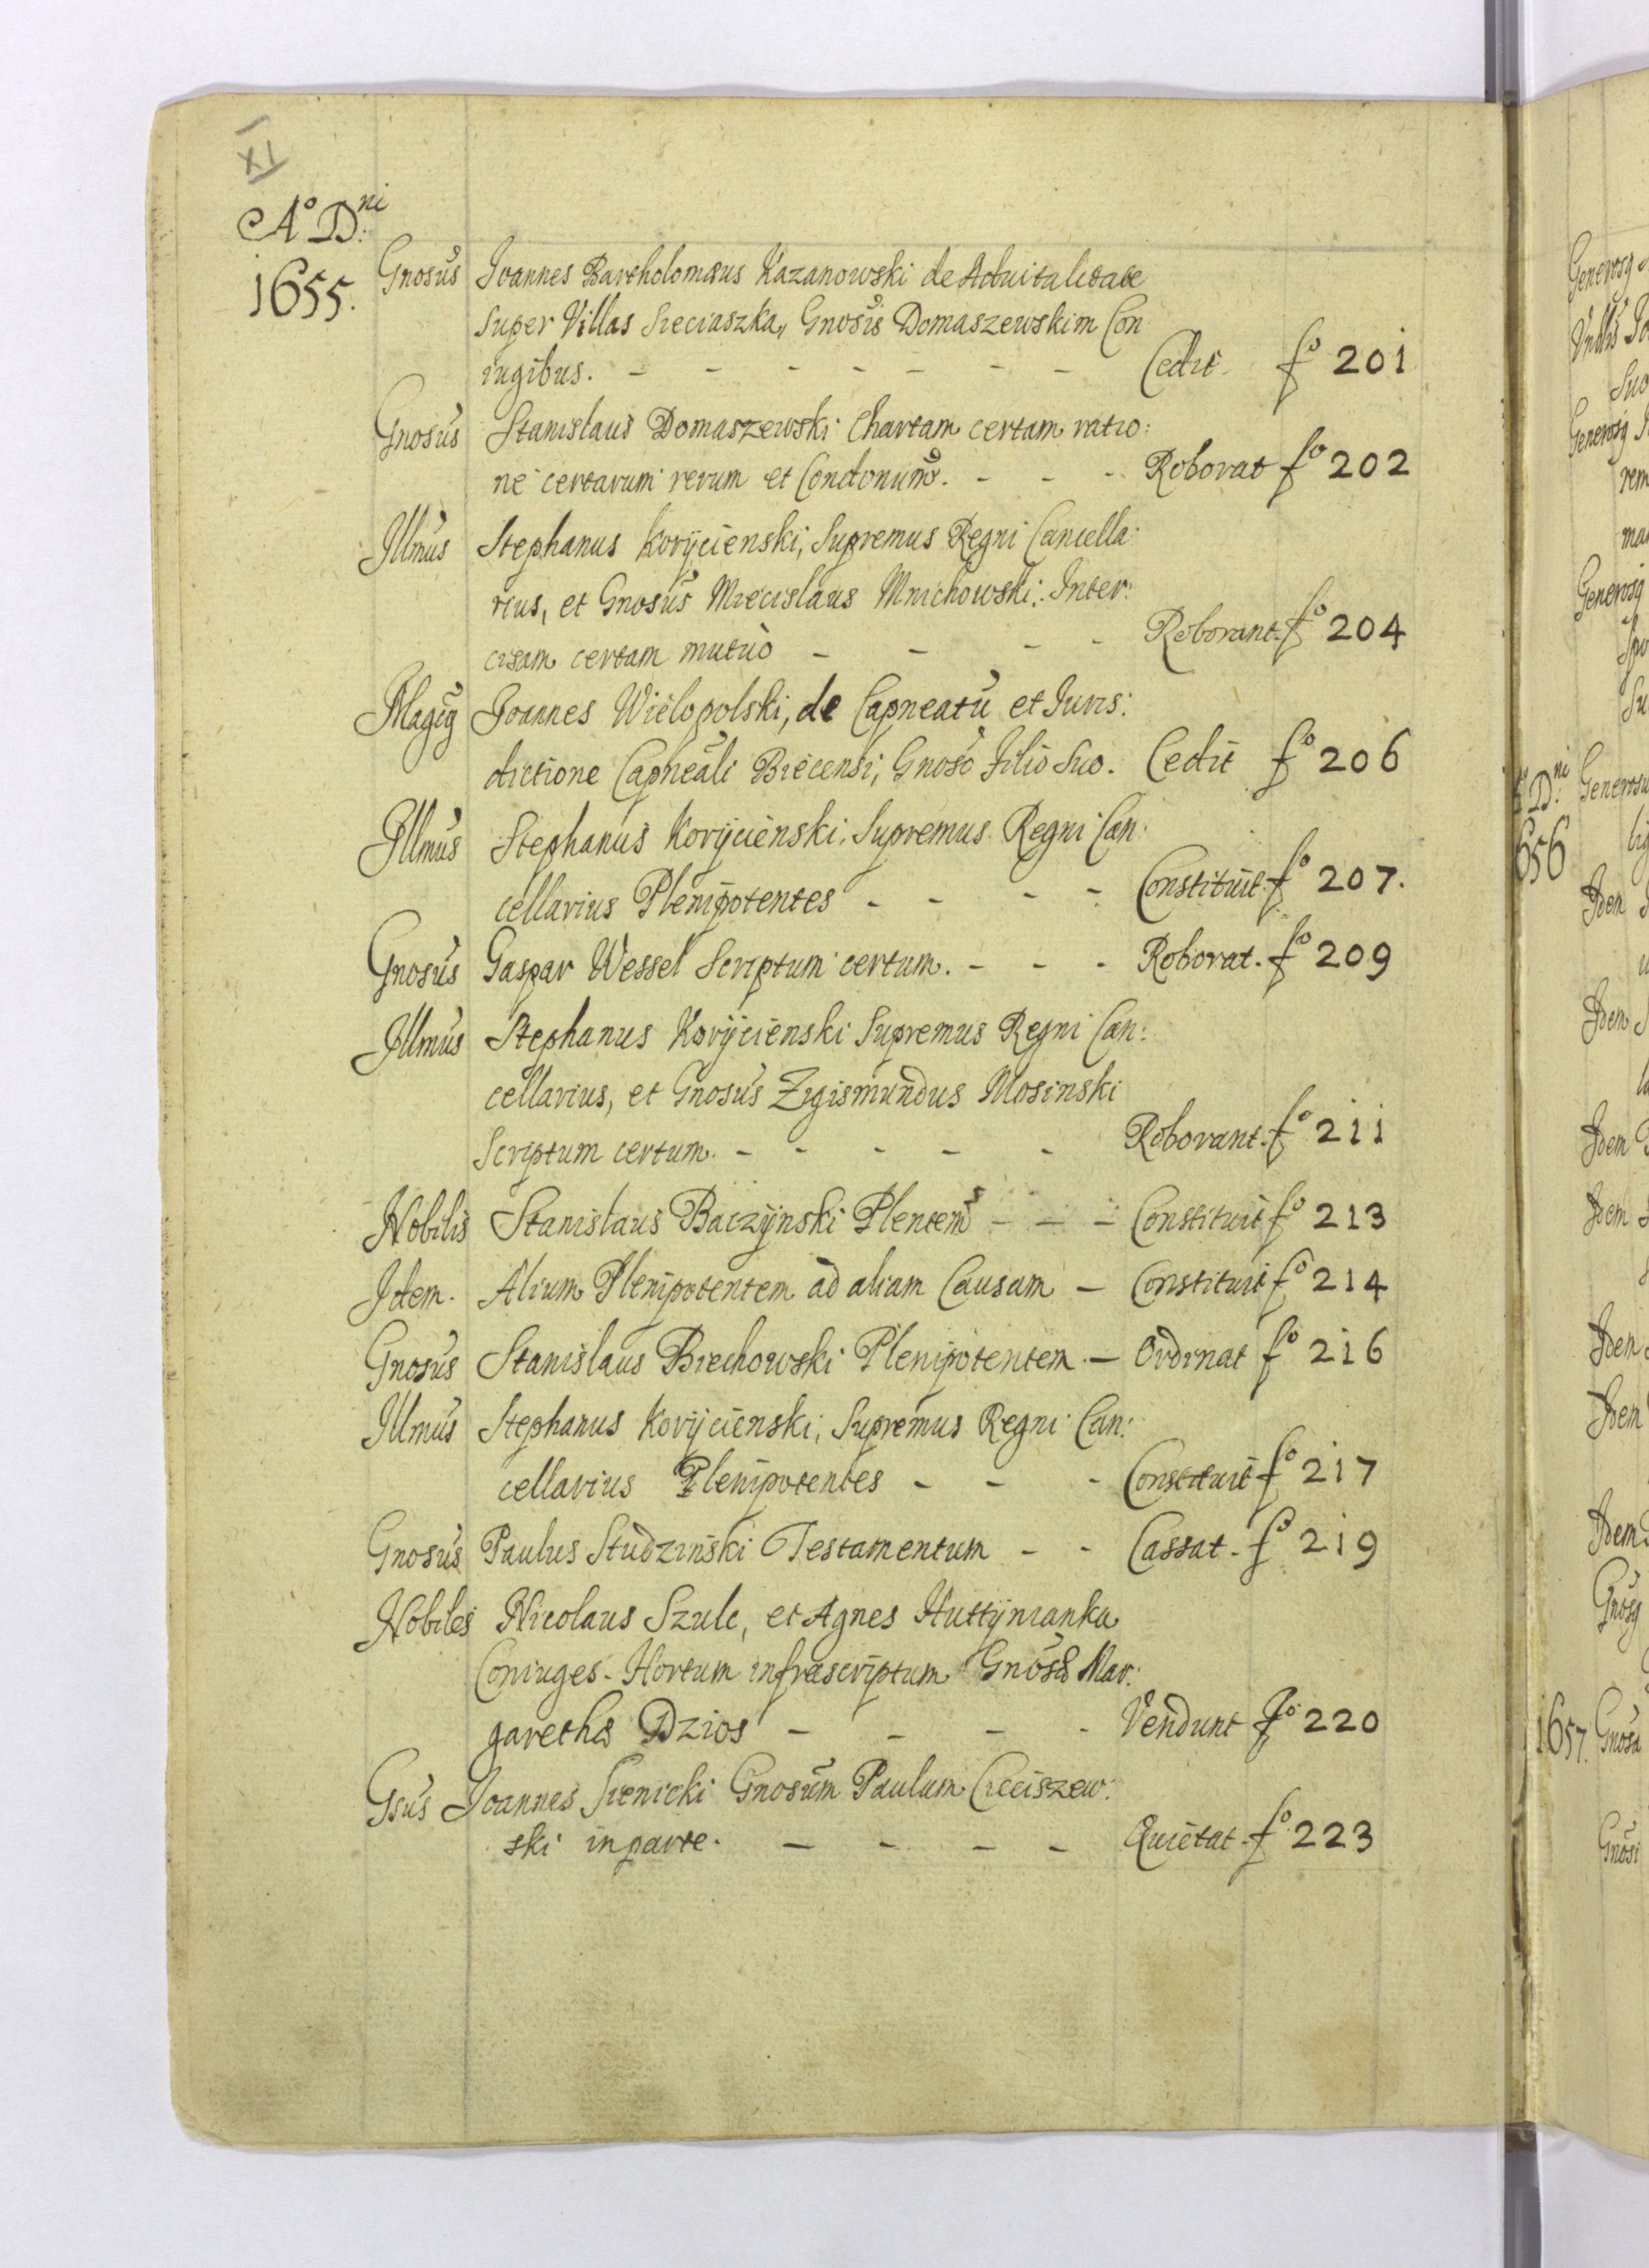 XI
Aº Dni:
1655.
Gnosus Joannes Bartholomæus Kazanowski de Aduitalitate
super Villas Sieciaszka, Gnosis Domaszewskim Con
iugibus. - - - - - - - Cedit fº 201
Gnosus Stanislaus Domaszewski Chartam certam ratio:
ne certarum rerum et Conditionum. - - - Roborat fº 202
Illmus Stephanus Korycienski, Supremus Regni Cancella:
rius, et Gnosus Miecislaus Mnichowski: Inter:
cisam certam mutuò - - - - Roborant. fº 204
Joannes Wielopolski, de Capneatu et Iuris:
dictione Capneali Biecensi, Gnoso Filio Suo. Cedit fº 206
Illmus Stephanus Korycienski, Supremus Regni Can:
cellarius Plenipotentes - - - - Constituit fº 207.
Gnosus Gaspar Wessel Scriptum certum. - - - Roborat. fº 209
Illmus Stephanus Korycienski Supremus Regni Can:
cellarius, et Gnosus Zigismundus Mosinski
Scriptum certum. - - - - - Roborant. fº 211
Nobilis Stanislaus Baczynski Plentem - - - Constituit fº 213
Idem. Alium Plenipotentem ad aliam Causam - Constituit fº 214
Gnosus Stanislaus Biechowski Plenipotentem. - Ordinat fº 216
Illmus Stephanus Korycienski, Supremus Regni Can:
cellarius Plenipotentes - - - Constituit fº 217
Gnosus Paulus Studzinski Testamentum - - Cassat. fº 219
Nobiles Nicolaus Szulc, et Agnes Huttynianka
Coniuges. Hortum infrascriptum Gnosæ Mar:
garethæ Dzios - - - - Vendunt fº 220
Gsus Joannes Sienicki Gnosum Paulum Cieciszew:
ski in parte. - - - - Quietat. fº 223
Dni:
656
1657.